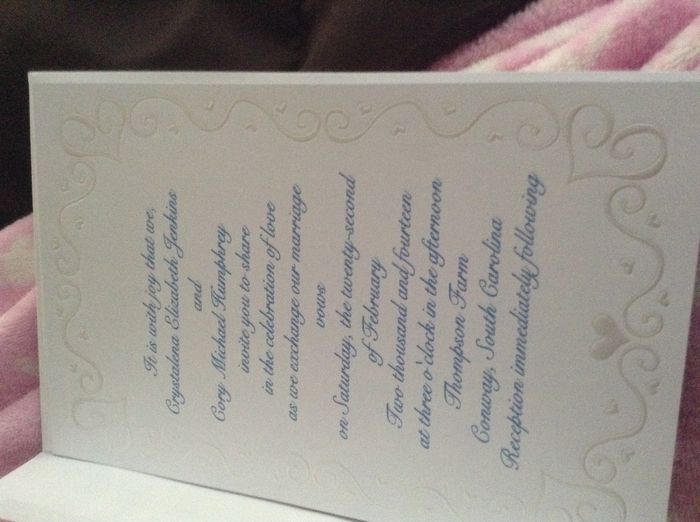 It is with joy that we,
Crystalena Elizabeth Jenkins
and
Cory Michael Humphrey
invite you to share
in the celebration of love
as we exchange our marriage
vows
on Saturday, the twenty-second
of February
Two thousand and fourteen
at three o'clock in the afternoon
Thompson Farm
Conway, South Carolina
Reception immediately following